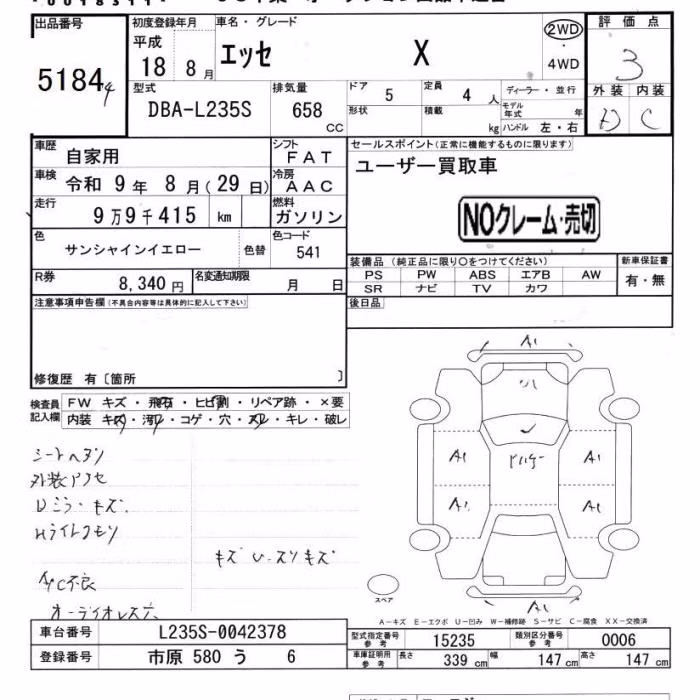 出品番号
5184
4
初度登録年月
平成
18 8 月
車名・グレード
エッセ X
2WD
・
4WD
評 価 点
3
外装 内装
D C
型式
DBA-L235S
排気量
658
CC
ドア 5
定員 4 人
形状
積載 kg
ディーラー・並行
モデル年式 年
ハンドル 左・右
車歴
自家用
シフト
FAT
車検
令和 9 年 8 月(29 日)
冷房
AAC
走行
9 万 9 千 415 km
燃料
ガソリン
色
サンシャインイエロー
色替
色コード
541
R券
8,340 円
名変通知期限
月 日
セールスポイント(正常に機能するものに限ります)
ユーザー買取車
NOクレーム・売切
装備品 (純正品に限り○をつけてください)
PS PW ABS エアB AW
SR ナビ TV カワ
新車保証書
有・無
後日品
注意事項申告欄(不具合内容等は具体的に記入して下さい)
修復歴 有〔箇所 〕
検査員記入欄
FW キズ・飛石・ヒビ割・リペア跡・×要
内装 キズ・汚レ・コゲ・穴・スレ・キレ・破レ
シートヘタリ
外装アクセ
Dミラーキズ
Hライトクモリ
キズ U・スリキズ
A/C不良
オーディオレス
A1
A1 A1
A1 A1
A1
スペア
A-キズ E-エクボ U-凹み W-補修跡 S-サビ C-腐食 XX-交換済
車台番号 L235S-0042378
登録番号 市原 580 う 6
型式指定番号参考 15235
類別区分番号参考 0006
車庫証明用参考 長さ 339 cm 幅 147 cm 高さ 147 cm